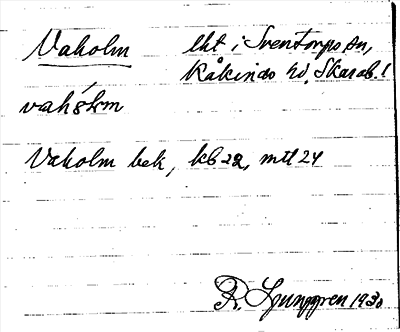 Vaholm lht i Sventorps sn,
Kåkinds hd, Skarab. l
vahólm
Vaholm bek, kb 22, mtl 24
R. Ljunggren 1930